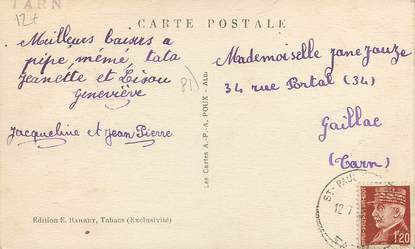 TARN
12+
CARTE POSTALE
Meilleurs baisers a
pipe, mémé, tata
Jeanette et Lisou
Geneviève
Jacqueline et Jean Pierre
Mademoiselle Jane Jauze
34 rue Portal (34)
Gaillac
(Tarn)
81)
Les Cartes A.-P.-A. POUX - Albi
Edition E. BARBEY, Tabacs (Exclusivité)
ST-PAUL
12.7
1f20